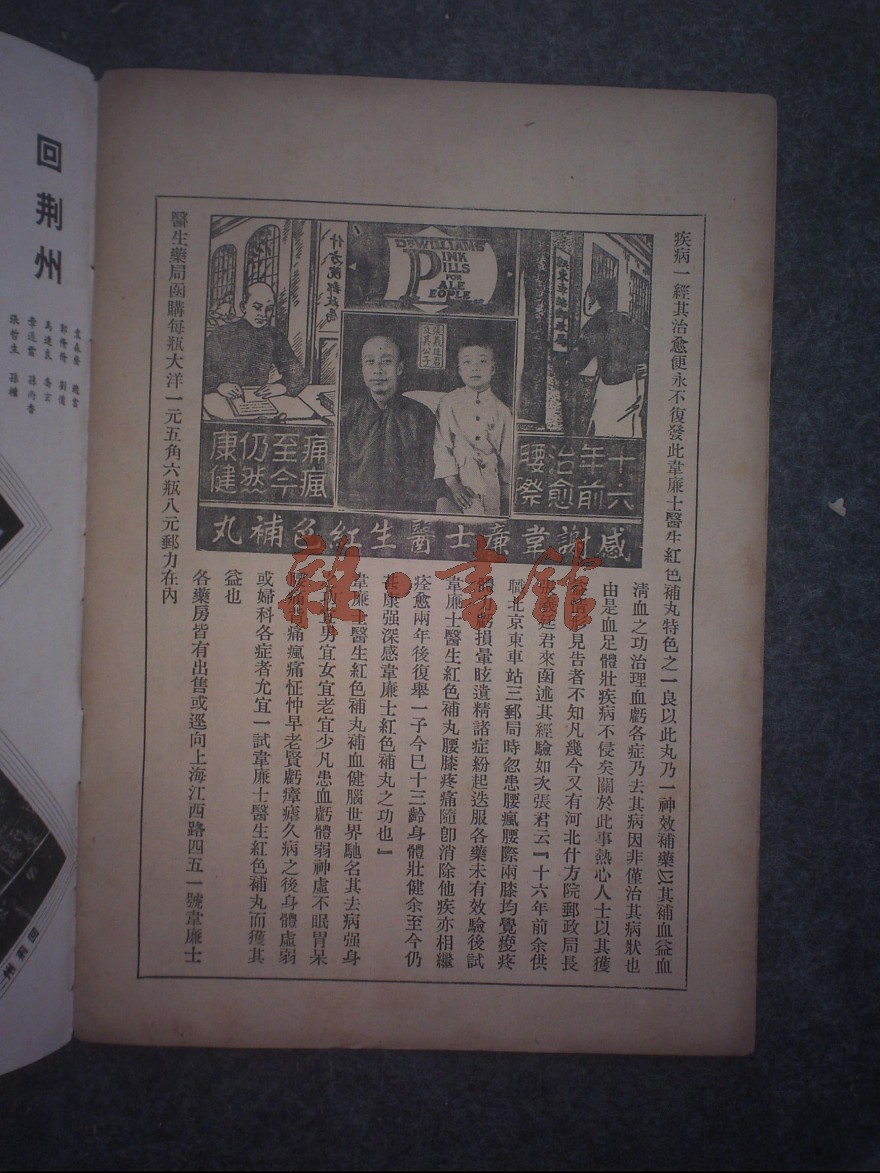 疾病一經其治愈便永不復發此韋廉士醫生紅色補丸特色之一良以此丸乃一神效補藥以其補血益血
清血之功治理血虧各症乃去其病因非僅治其病狀也
由是血足體壯疾病不侵矣關於此事熱心人士以其獲
益情形見告者不知凡幾今又有河北什方院郵政局長
張義廷君來函述其經驗如次張君云『十六年前余供
職北京東車站三郵局時忽患腰瘋腰際兩膝均覺痠疼
體力虧損暈眩遺精諸症紛起迭服各藥未有效驗後試
韋廉士醫生紅色補丸腰膝疼痛隨卽消除他疾亦相繼
痊愈兩年後復舉一子今已十三齡身體壯健余至今仍
甚康强深感韋廉士紅色補丸之功也』
韋廉士醫生紅色補丸補血健腦世界馳名其去病强身
之功宜男宜女宜老宜少凡患血虧體弱神虛不眠胃呆
腰痛背痛瘋痛怔忡早老腎虧瘴瘧久病之後身體虛弱
或婦科各症者尤宜一試韋廉士醫生紅色補丸而獲其
益也
各藥房皆有出售或逕向上海江西路四五一號韋廉士
醫生藥局函購每瓶大洋一元五角六瓶八元郵力在內
什方院郵政局
DR WILLIAMS'
PINK
PILLS
FOR
PALE
PEOPLE
張義廷君
及其公子
十六
年前
治愈
腰祭
痛瘋
至今
仍然
康健
感謝韋廉士醫生紅色補丸
雜·書館
回荆州